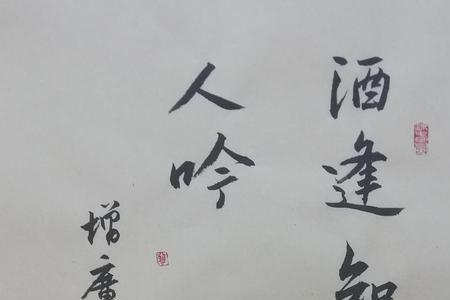 酒逢知
人吟
增廣